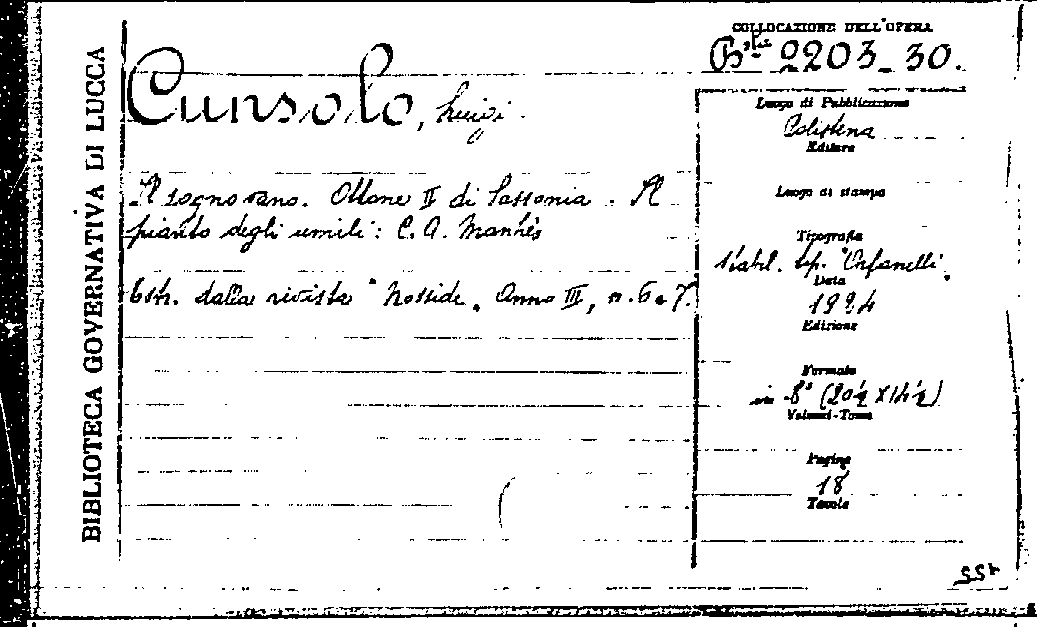 BIBLIOTECA GOVERNATIVA DI LUCCA
COLLOCAZIONE DELL'OPERA
B.ta 2203_30.
Cunsolo, Luigi.
Il sogno vano. Ottone II di Sassonia. Il
pianto degli umili: C. A. Manhès
Estr. dalla rivista "Nosside", Anno III, n. 6 e 7.
Luogo di Pubblicazione
Polistena
Editore
Luogo di stampa
Tipografia
Stabl. tip. "Orfanelli".
Data
1924
Edizione
Formato
in 8° (20½ x 14½)
Volumi-Tomo
Pagine
18
Tavole